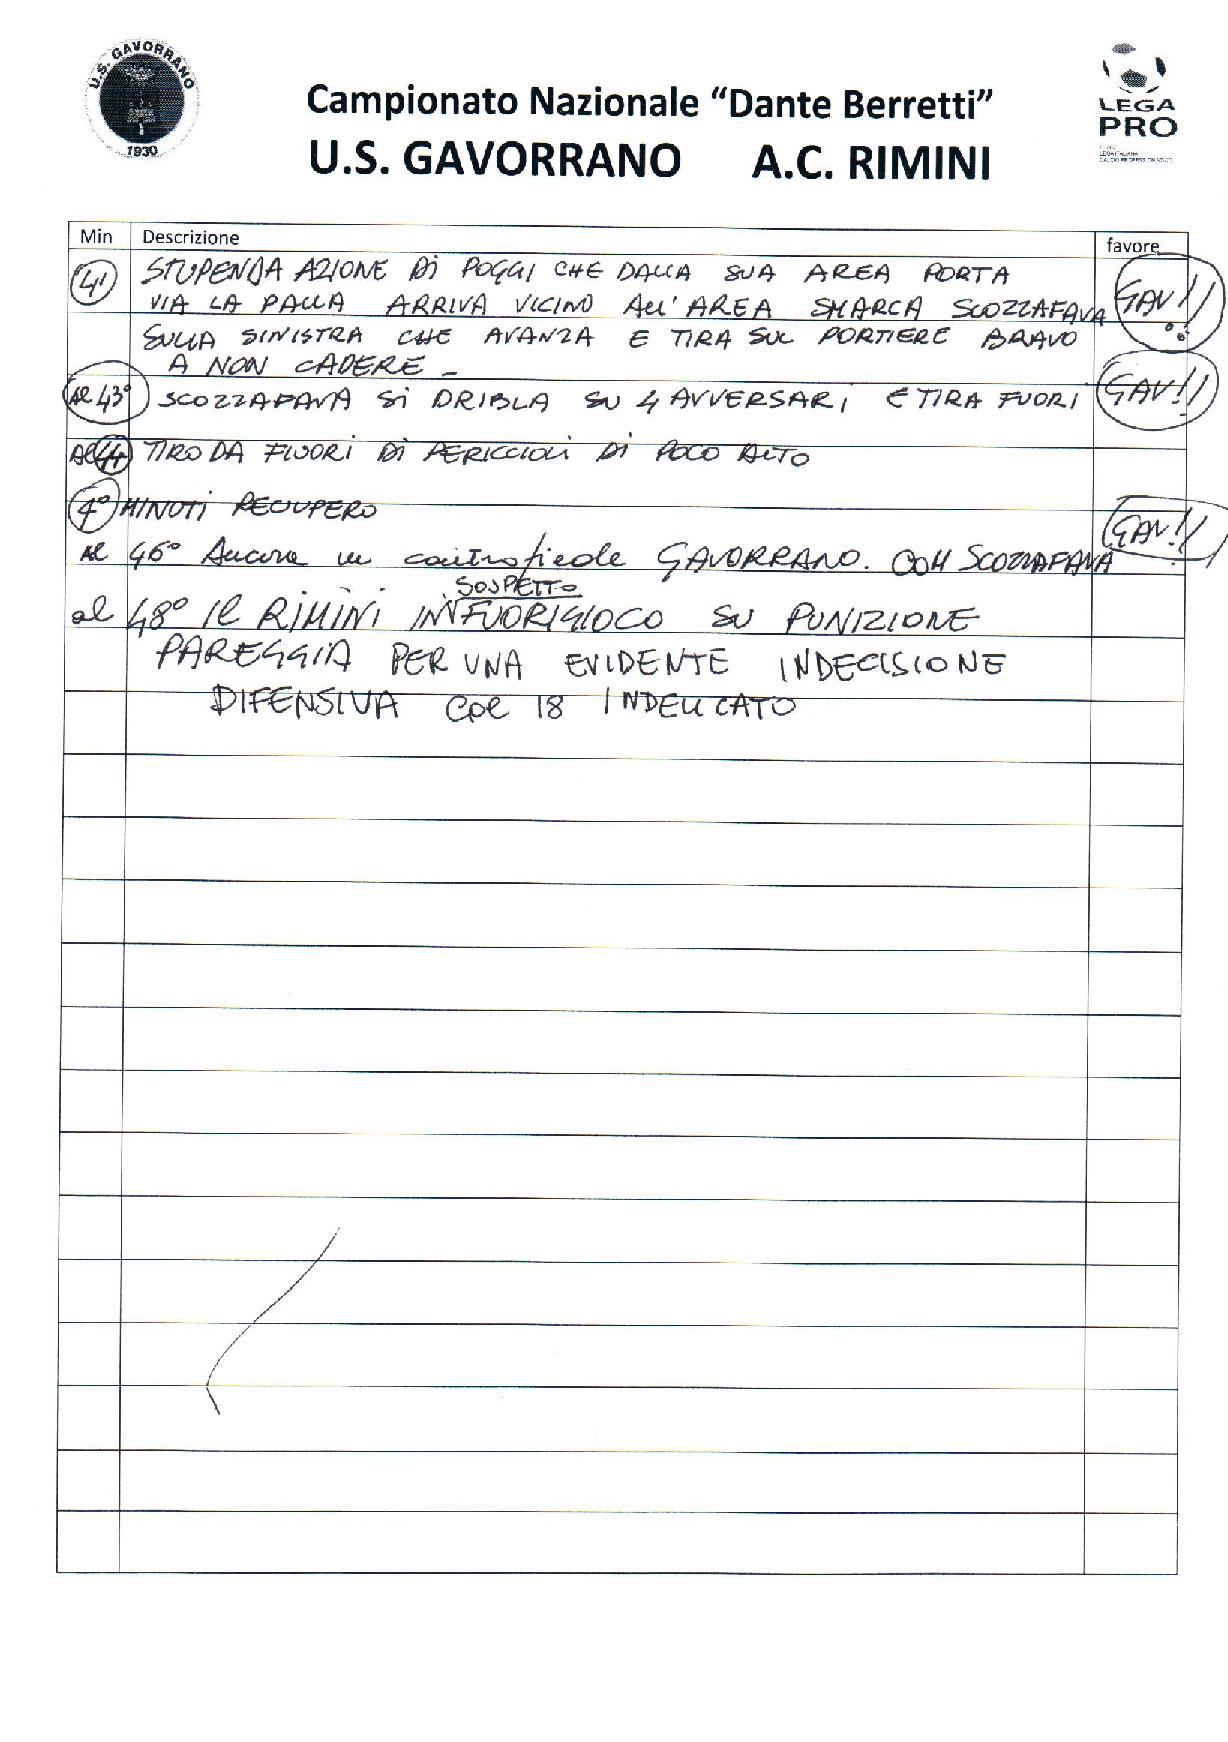 U.S. GAVORRANO
1930
Campionato Nazionale “Dante Berretti”
U.S. GAVORRANO A.C. RIMINI
LEGA
PRO
Min Descrizione favore
41 STUPENDA AZIONE DI POGGI CHE DALLA SUA AREA PORTA
VIA LA PALLA ARRIVA VICINO ALL' AREA SMARCA SCOZZAFAVA GAV!!
SULLA SINISTRA CHE AVANZA E TIRA SUL PORTIERE BRAVO
A NON CADERE -
AL 43° SCOZZAFAVA SI DRIBLA SU 4 AVVERSARI E TIRA FUORI GAV!!
AL 44 TIRO DA FUORI DI PERICCIOLI DI POCO ALTO
4° MINUTI RECUPERO
Al 46° Ancora in contropiede GAVORRANO. CON SCOZZAFAVA GAV!!
SOSPETTO
al 48° IL RIMINI IN FUORIGIOCO SU PUNIZIONE
PAREGGIA PER UNA EVIDENTE INDECISIONE
DIFENSIVA COL 18 INDELICATO